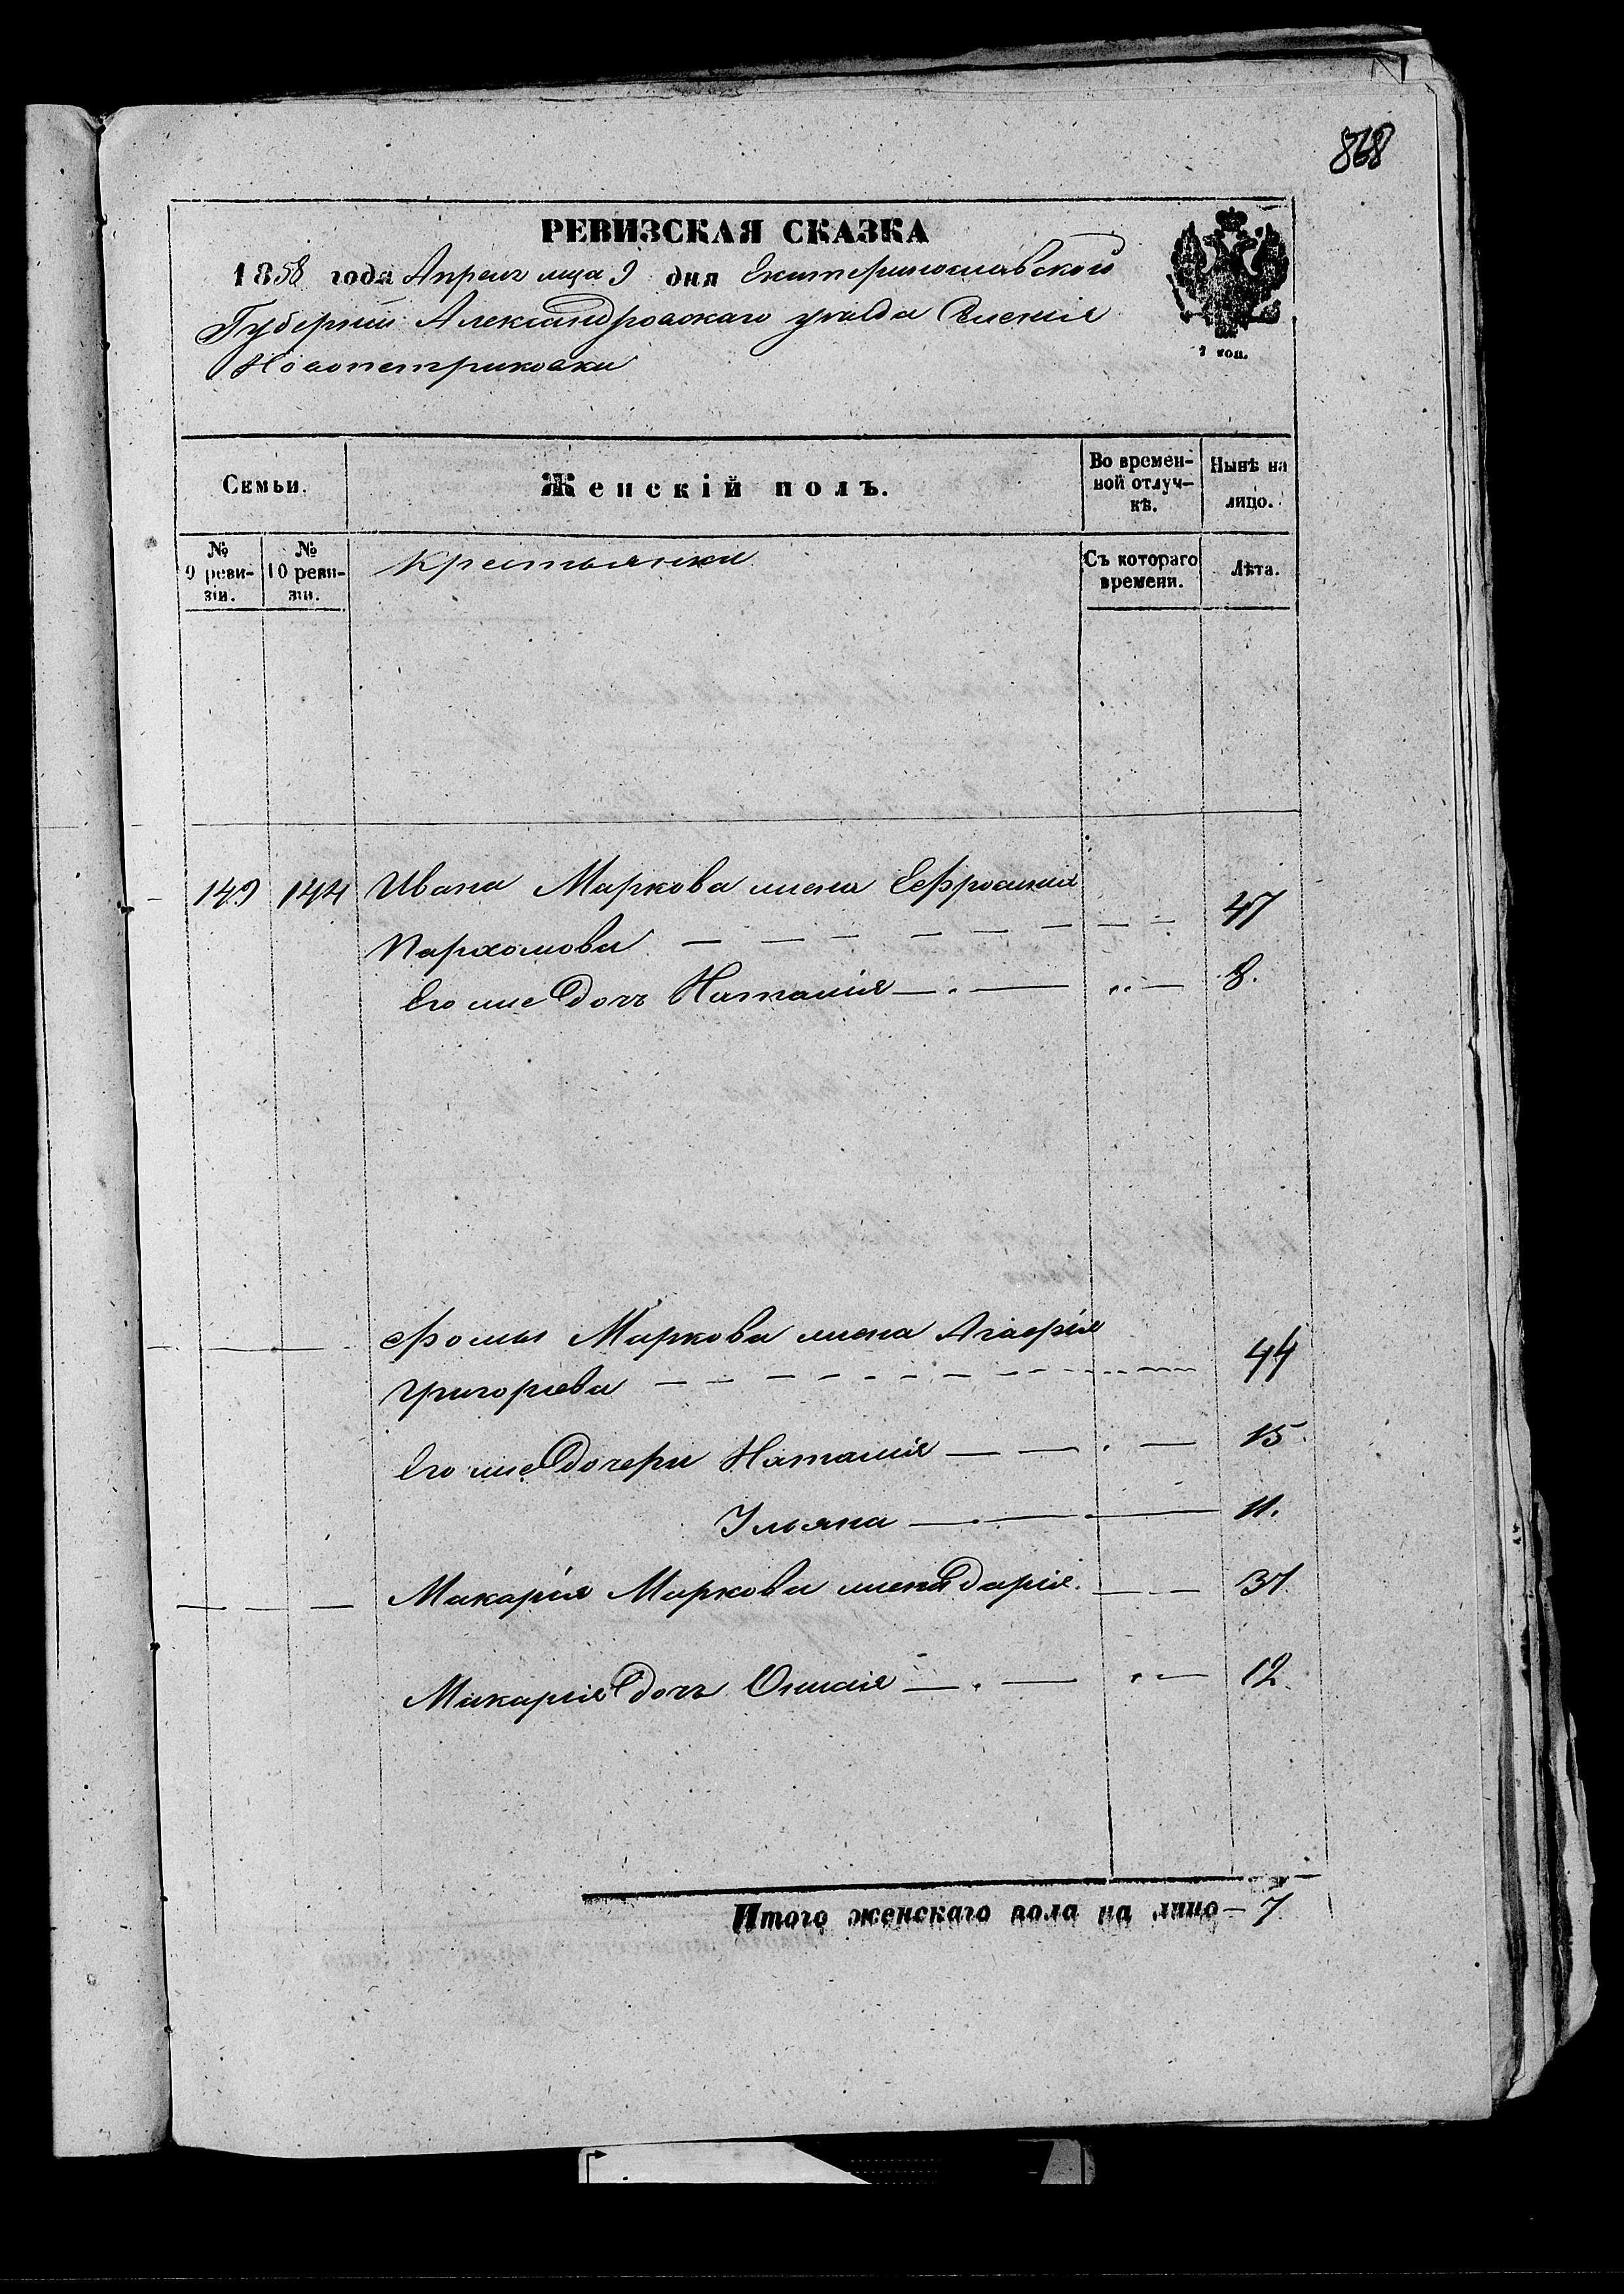 868
РЕВИЗСКАЯ СКАЗКА
1858 года Апреля мца 9 дня Екатеринославской
Губернии Александровскаго уезда Селения
Новопетриковки
1 коп.
Семьи.
Женскій полъ.
Во времен-
ной отлуч-
кѣ.
Нынѣ на
лицо.
№
9 реви-
зіи.
№
10 реви-
зіи.
Крестьянки
Съ котораго
времени.
Лѣта.
149 144 Ивана Маркова жена Ефросинія
Пархомова 47
Его же дочь Наталия 8.
Фомы Маркова жена Агафія
Григорьева 44
Его же дочери Наталия 15
Ульяна 11.
Макарія Маркова жена Дарія 37
Макария дочь 12
Итого женскаго пола на лицо — 7